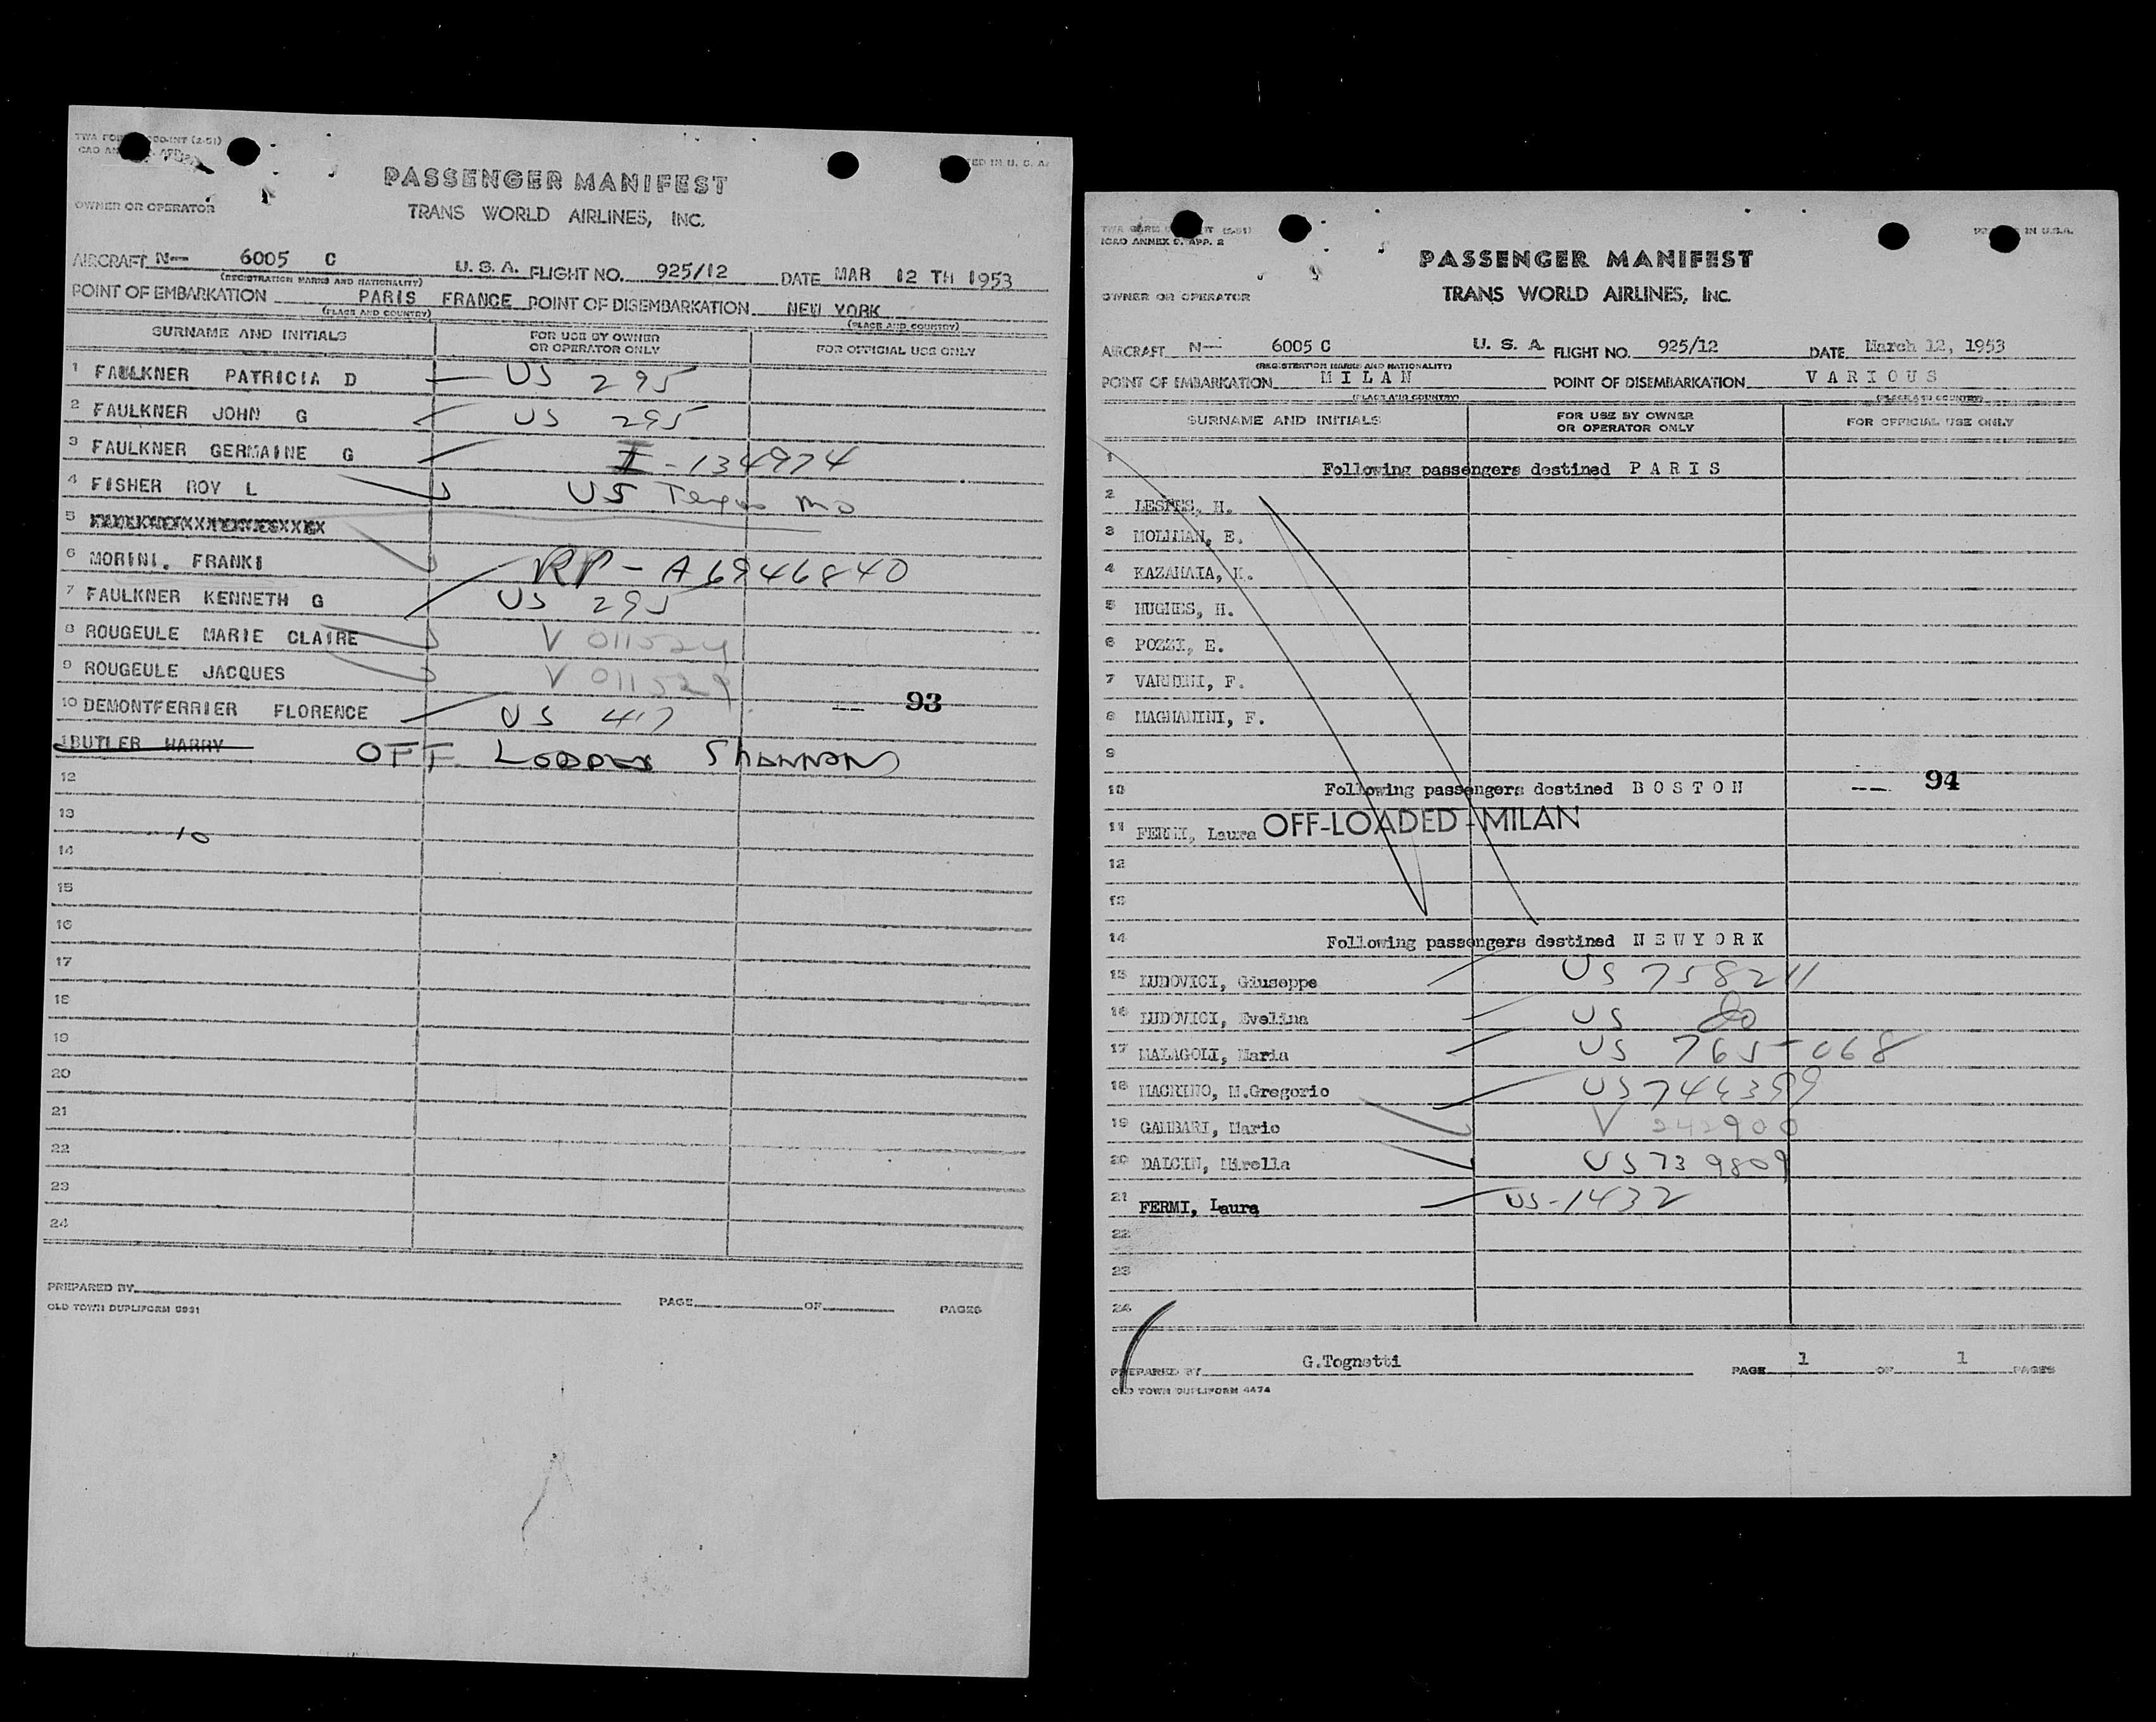 PASSENGER MANIFEST
OWNER OR OPERATOR
TRANS WORLD AIRLINES, INC.
AIRCRAFT N— 6005 C U. S. A. FLIGHT NO. 925/12 DATE MAR 12 TH 1953
(REGISTRATION MARKS AND NATIONALITY)
POINT OF EMBARKATION PARIS FRANCE POINT OF DISEMBARKATION NEW YORK
(PLACE AND COUNTRY) (PLACE AND COUNTRY)
SURNAME AND INITIALS FOR USE BY OWNER OR OPERATOR ONLY FOR OFFICIAL USE ONLY
1 FAULKNER PATRICIA D US 295
2 FAULKNER JOHN G US 295
3 FAULKNER GERMAINE G I-134974
4 FISHER ROY L US
5
6 MORINI. FRANKI RP-A6946840
7 FAULKNER KENNETH G US 295
8 ROUGEULE MARIE CLAIRE V 011524
9 ROUGEULE JACQUES V 011529
93
10 DEMONTFERRIER FLORENCE US 417
BUTLER HARRY OFF LOADED SHANNON
12
13
10
14
15
16
17
18
19
20
21
22
23
24
PREPARED BY PAGE OF PAGES
OLD TOWN DUPLIFORM
ICAO ANNEX 9. APP. 2
IN U.S.A.
PASSENGER MANIFEST
OWNER OR OPERATOR
TRANS WORLD AIRLINES, Inc.
AIRCRAFT N— 6005 C U. S. A. FLIGHT NO. 925/12 DATE March 12, 1953
(REGISTRATION MARKS AND NATIONALITY)
POINT OF EMBARKATION MILAN POINT OF DISEMBARKATION VARIOUS
(PLACE AND COUNTRY) (PLACE AND COUNTRY)
SURNAME AND INITIALS FOR USE BY OWNER OR OPERATOR ONLY FOR OFFICIAL USE ONLY
1 Following passengers destined PARIS
2 H.
3 MOLLMAN, E.
4 KAZAHAIA, K.
5 HUGHES, H.
6 POZZI, E.
7 F.
8 MAGNANINI, F.
9
94
10 Following passengers destined BOSTON
11 FERMI, Laura OFF-LOADED - MILAN
12
13
14 Following passengers destined NEWYORK
15 LUDOVICI, Giuseppe US 758211
16 LUDOVICI, Evelina US do
17 MALAGOLI, Maria US 765-068
18 MACRINO, M.Gregorio US744399
19 GAMBARI, Mario V 242900
20 DALCIN, Mirella US739809
21 FERMI, Laura US-1432
22
23
24
PREPARED BY G.Tognetti PAGE 1 OF 1 PAGES
OLD TOWN DUPLIFORM 4474